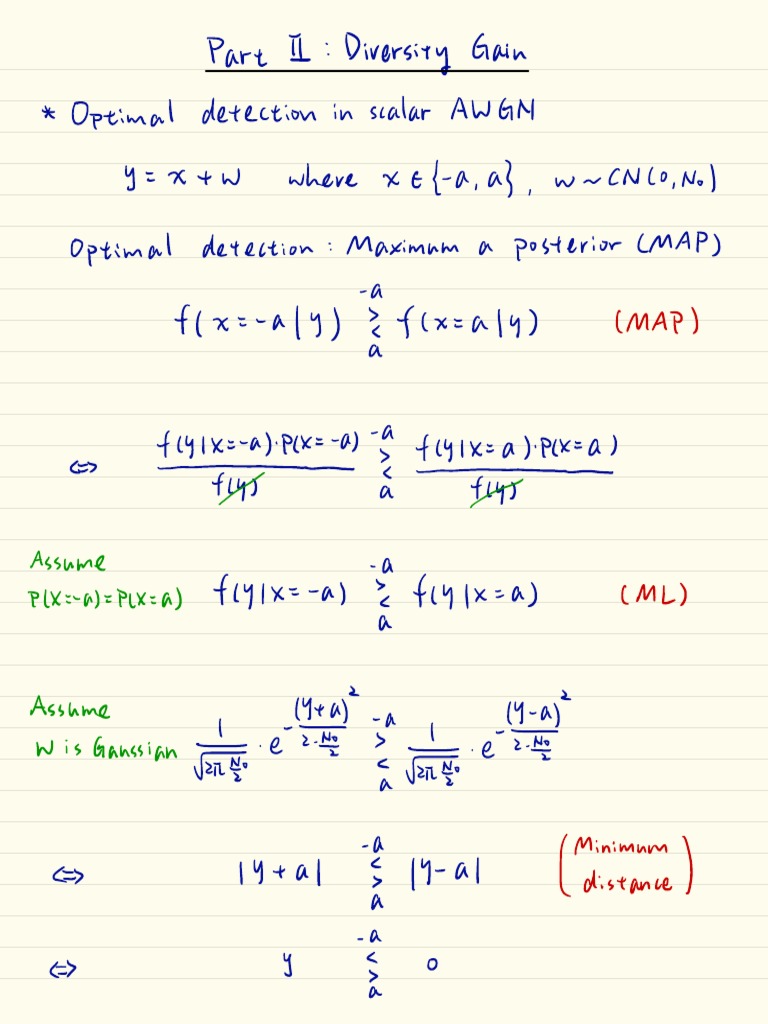 Part II : Diversity Gain
* Optimal detection in scalar AWGN
y = x + w where x ∈ {-a, a}, w ~ CN(0, N₀)
Optimal detection : Maximum a posterior (MAP)
-a
f(x = -a | y) > < f(x = a | y) (MAP)
a
⇔ f(y|x=-a)·P(x=-a) / f(y) -a > < a f(y|x=a)·P(x=a) / f(y)
Assume
P(X=-a)=P(X=a) f(y|x=-a) -a > < a f(y|x=a) (ML)
Assume
W is Gaussian 1/√(2π N₀/2) · e^{-(y+a)²/(2·N₀/2)} -a > < a 1/√(2π N₀/2) · e^{-(y-a)²/(2·N₀/2)}
⇔ |y+a| -a < > a |y-a| (Minimum distance)
⇔ y -a < > a 0